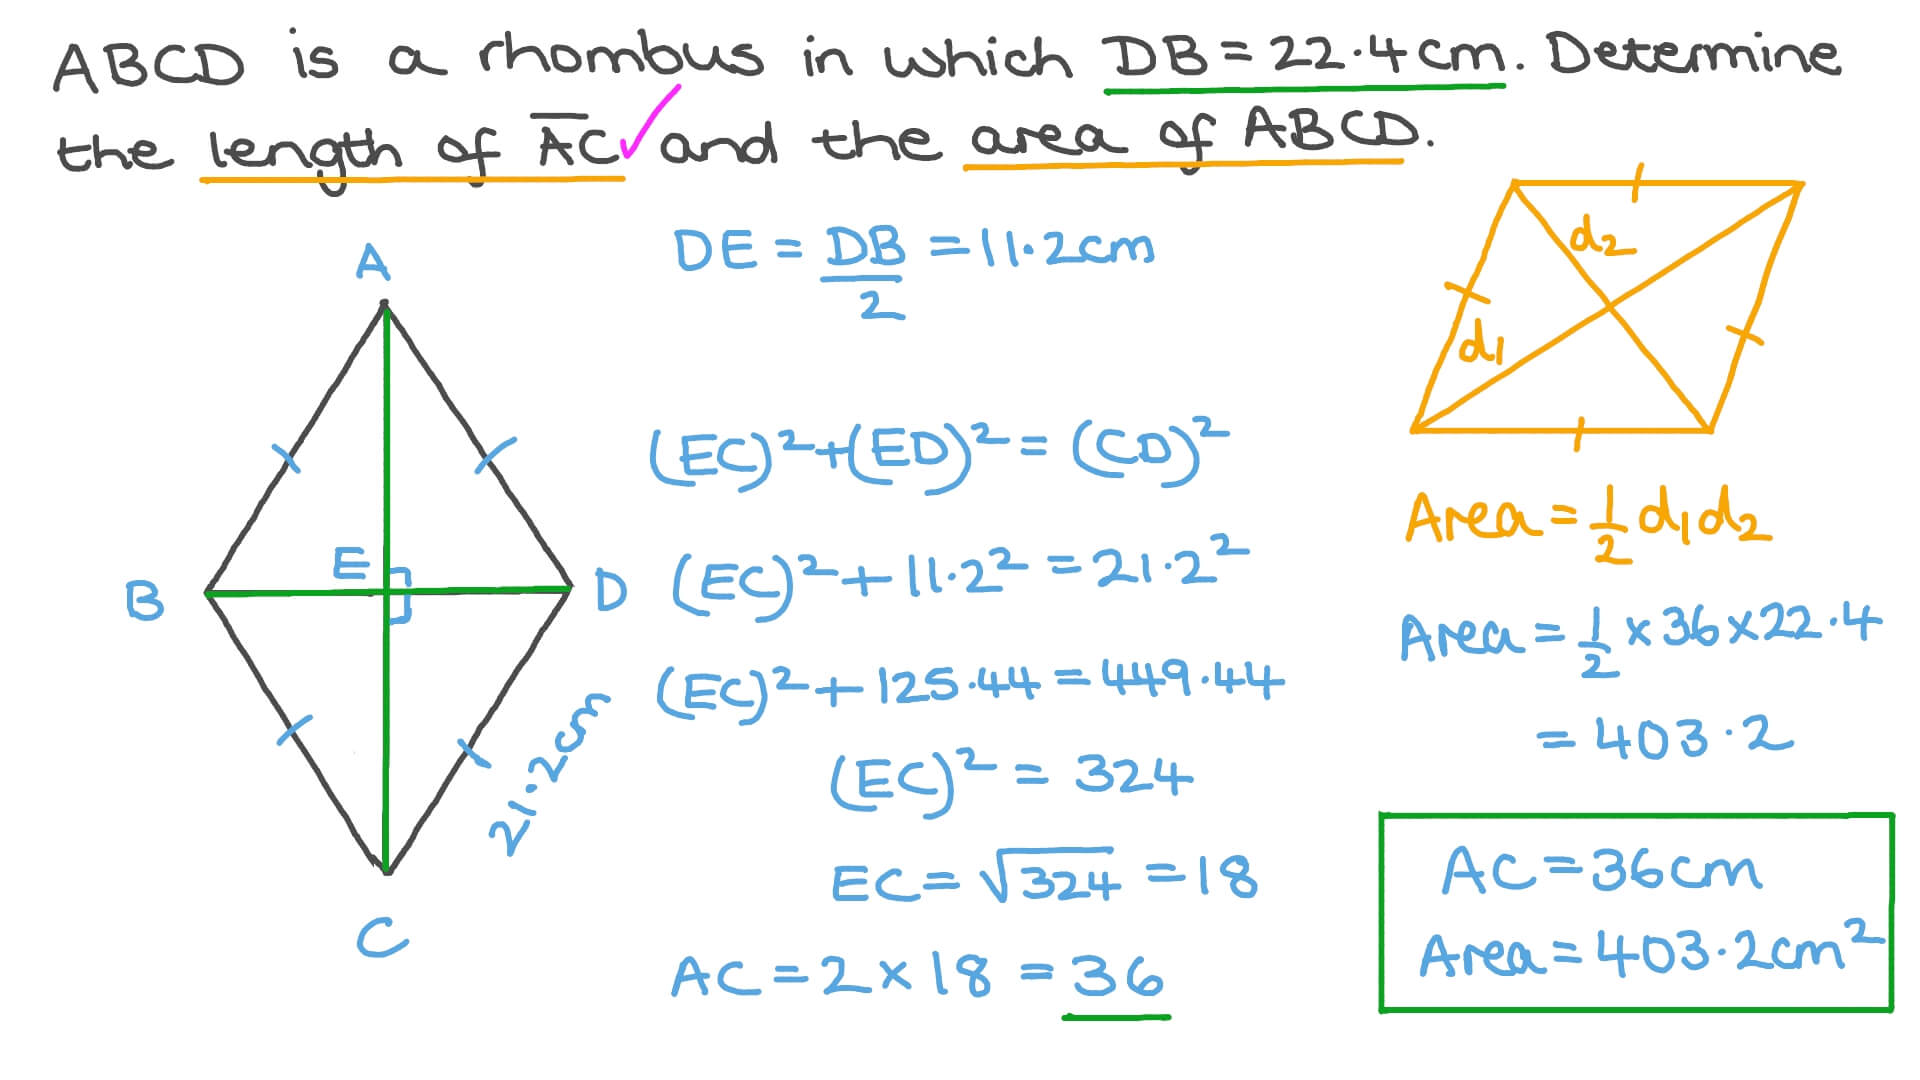 ABCD is a rhombus in which DB=22·4cm. Determine
the length of A̅C̅ and the area of ABCD.
A
B
E
D
C
21·2cm
DE = DB/2 = 11·2cm
(EC)²+(ED)²=(CD)²
(EC)²+11·2²=21·2²
(EC)²+125·44=449·44
(EC)²=324
EC=√324=18
AC=2×18=36
d₂
d₁
Area=½d₁d₂
Area=½×36×22·4
=403·2
AC=36cm
Area=403·2cm²